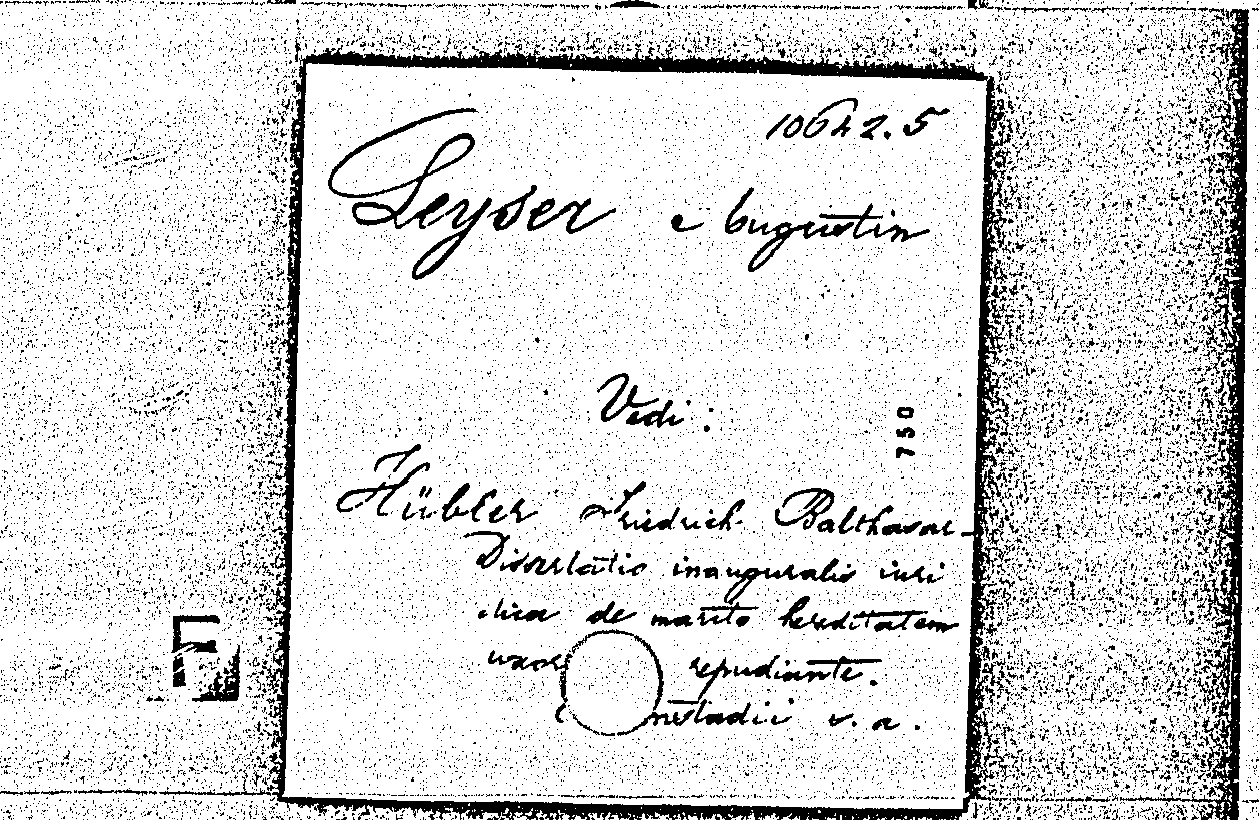 10642.5
Leyser Augustin
Vedi:
750
Hübler Friedrich Balthasar
Dissertatio inauguralis iuri
dica de marito hereditatem
uxor repudiante.
s. a.